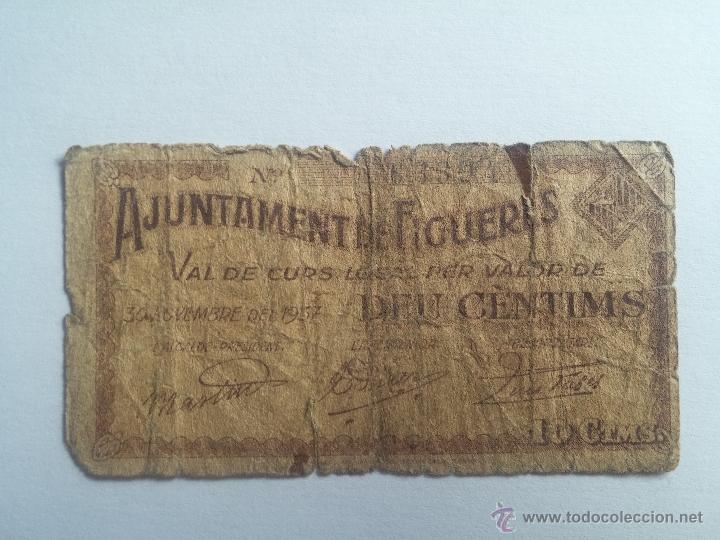 Nº
AJUNTAMENT DE FIGUERES
VAL DE CURS LOCAL PER VALOR DE
30 NOVEMBRE DEL 1937 DEU CÈNTIMS
L'ALCALDE-PRESIDENT
10 CTMS.
www.todocoleccion.net